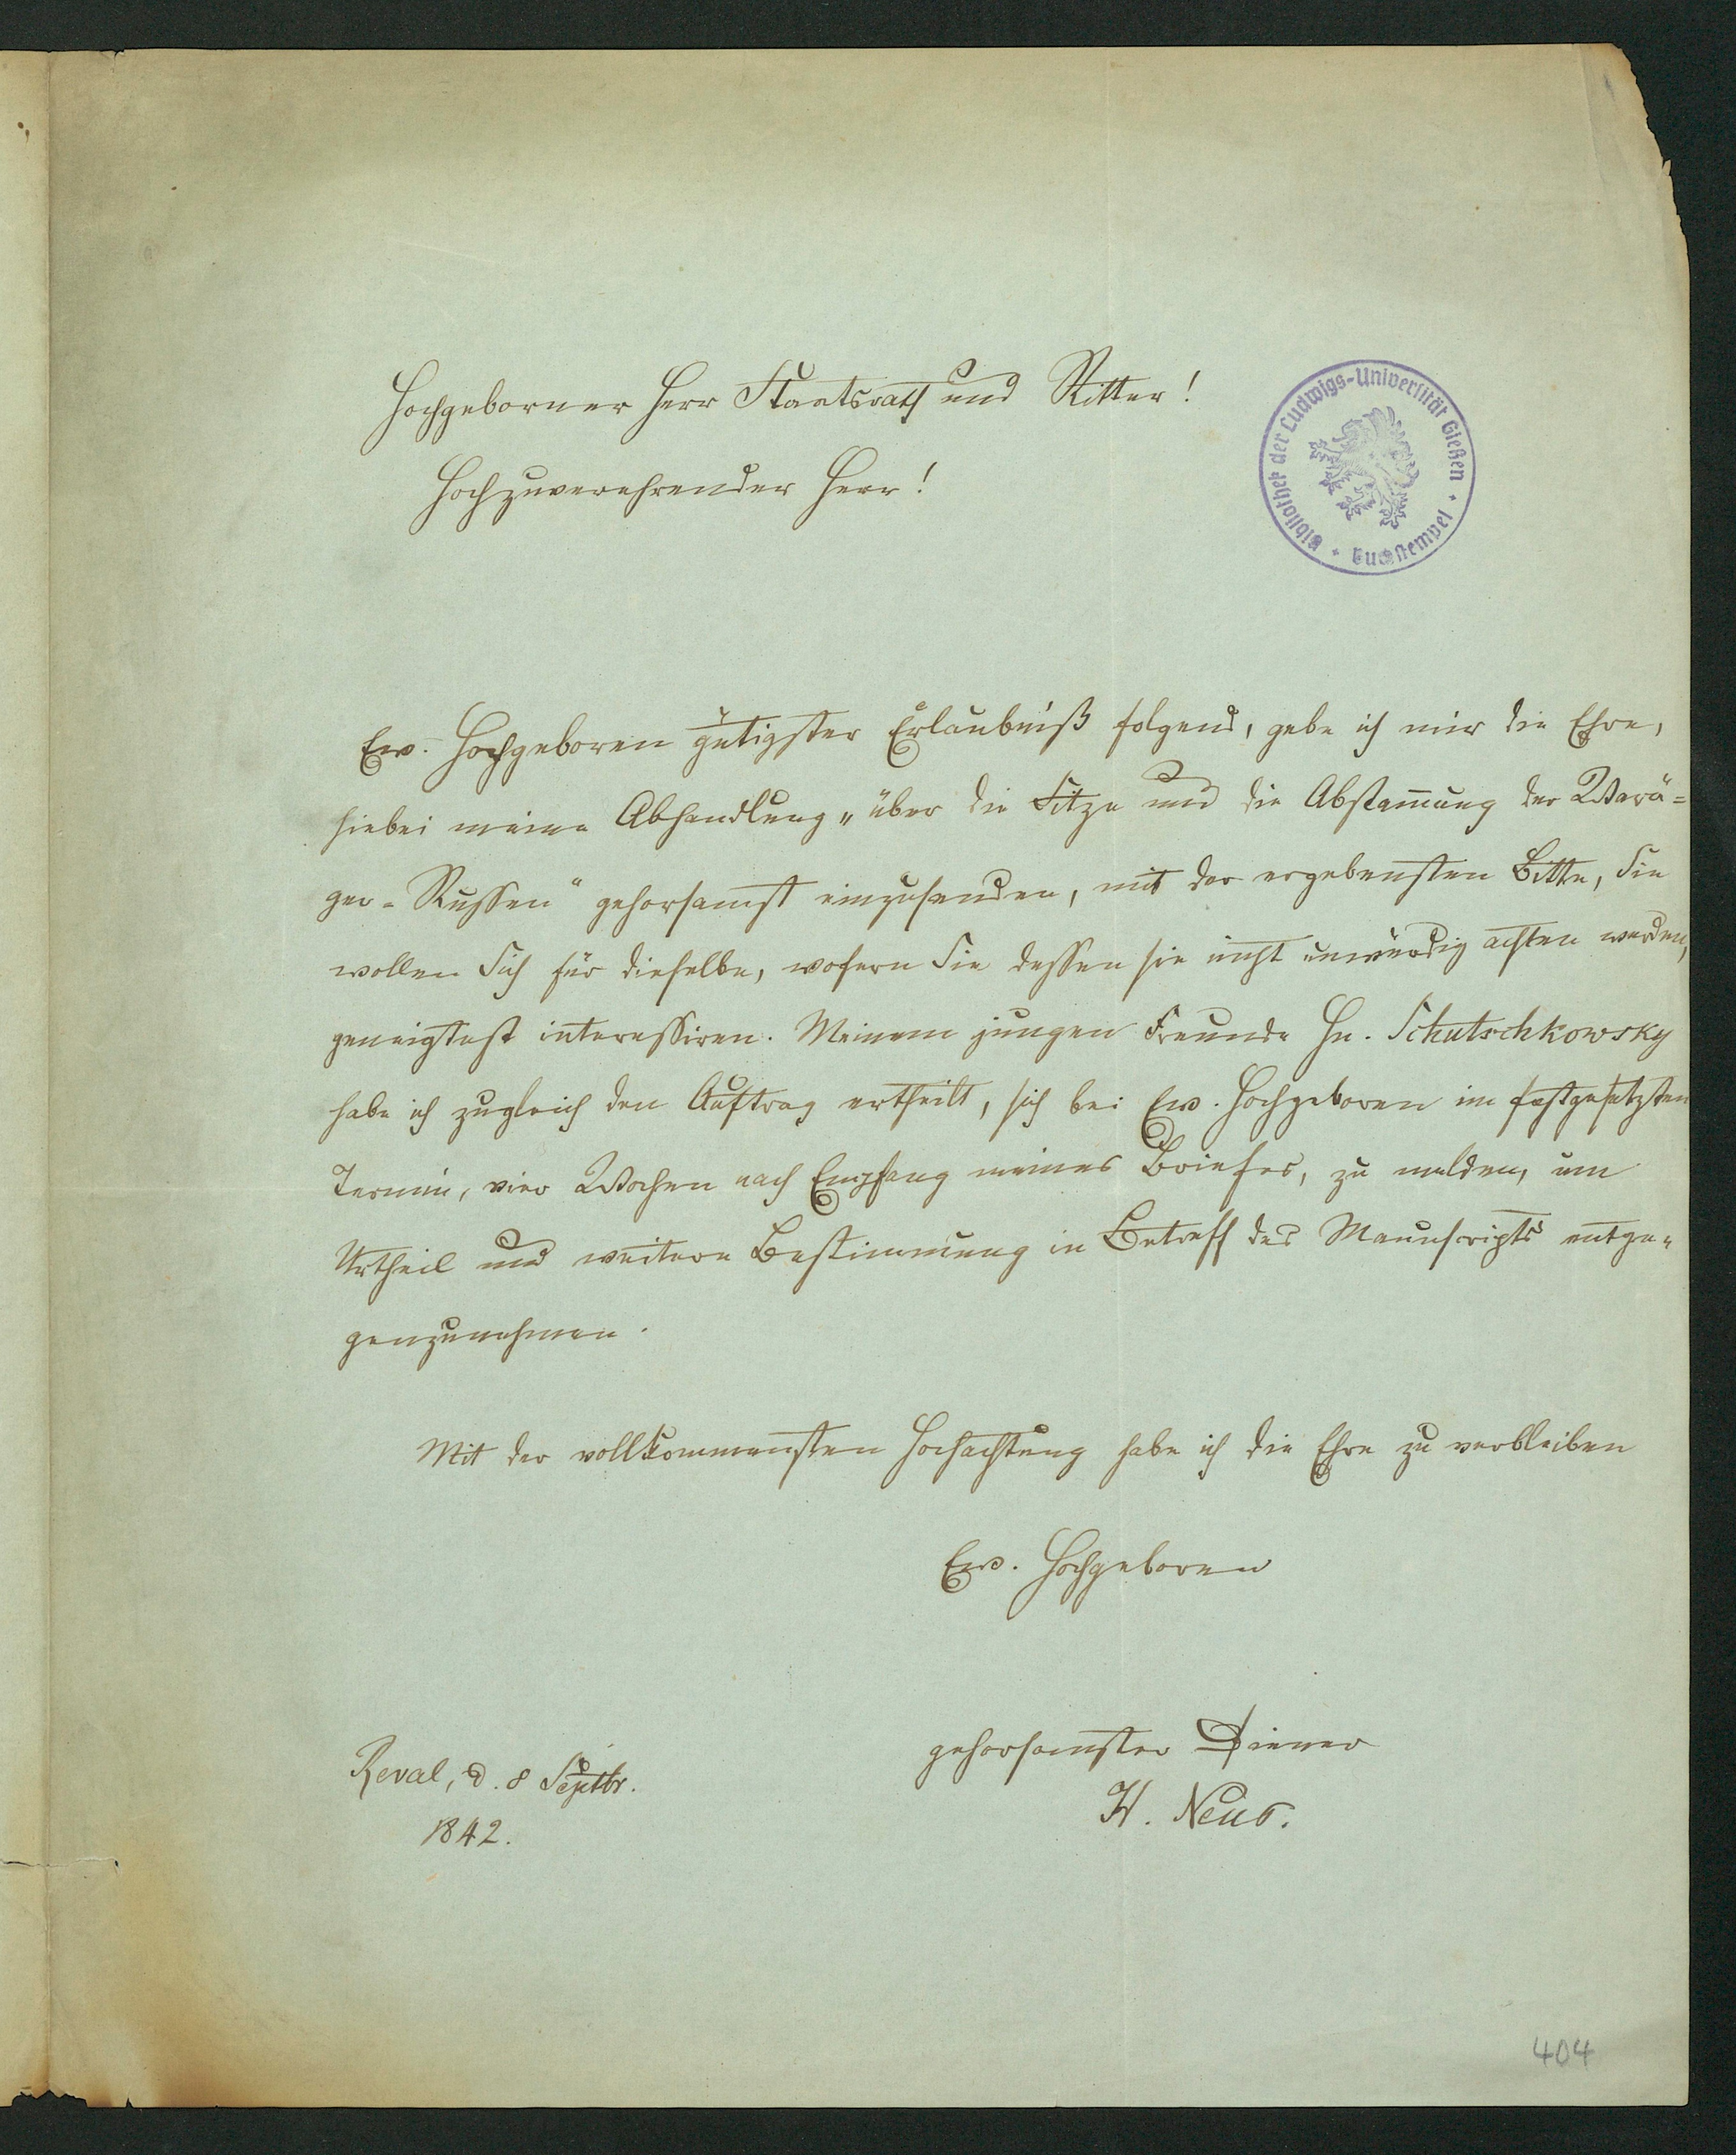 Hochgeborner Herr Staatsrath und Ritter!
Hochzuverehrender Herr!
Bibliothek der Ludwigs-Universität Gießen + Buchstempel +
Ew. Hochgeboren gütigster Erlaubniß folgend, gebe ich mir die Ehre,
hiebei meine Abhandlung „über die Sitze und die Abstam̅ung der Warä=
ger-Russen“ gehorsamst einzusenden, mit der ergebensten Bitte, Sie
wollen Sich für dieselbe, wofern Sie dessen sie nicht unwürdig achten werden,
geneigtest interessiren. Meinem jungen Freunde Hn. Schutschkowsky
habe ich zugleich den Auftrag ertheilt, sich bei Ew. Hochgeboren im festgesetzten
Termin, vier Wochen nach Empfang meines Briefes, zu melden, um
Urtheil und weitere Bestimmung in Betreff des Manuscripts entge=
genzunehmen.
Mit der vollkommensten Hochachtung habe ich die Ehre zu verbleiben
Ew. Hochgeboren
gehorsamster Diener
H. Neus.
Reval, d. 8 Septbr.
1842.
404